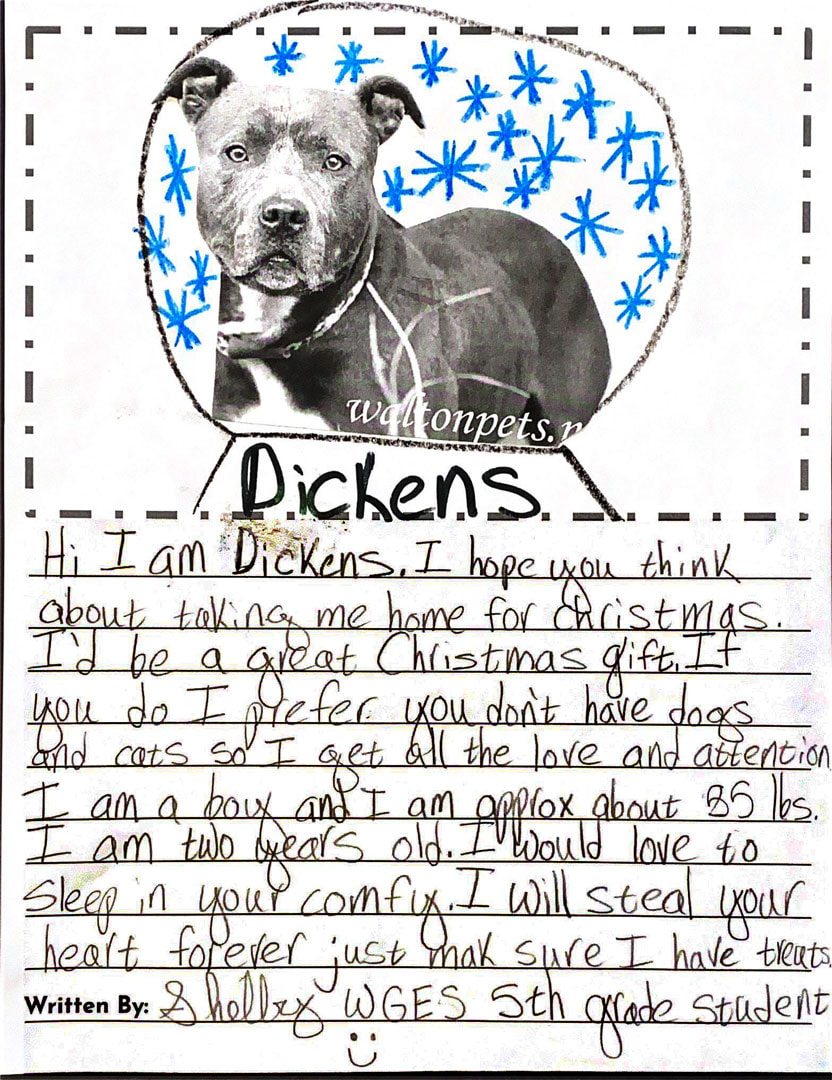 waltonpets.n
Dickens
Hi I am Dickens. I hope you think
about taking me home for christmas.
I'd be a great Christmas gift. If
you do I prefer you don't have dogs
and cats so I get all the love and attention
I am a boy and I am approx about 85 lbs.
I am two years old. I would love to
sleep in your comfiy. I will steal your
heart forever just mak sure I have treats.
Written By: Shelby WGES 5th grade student